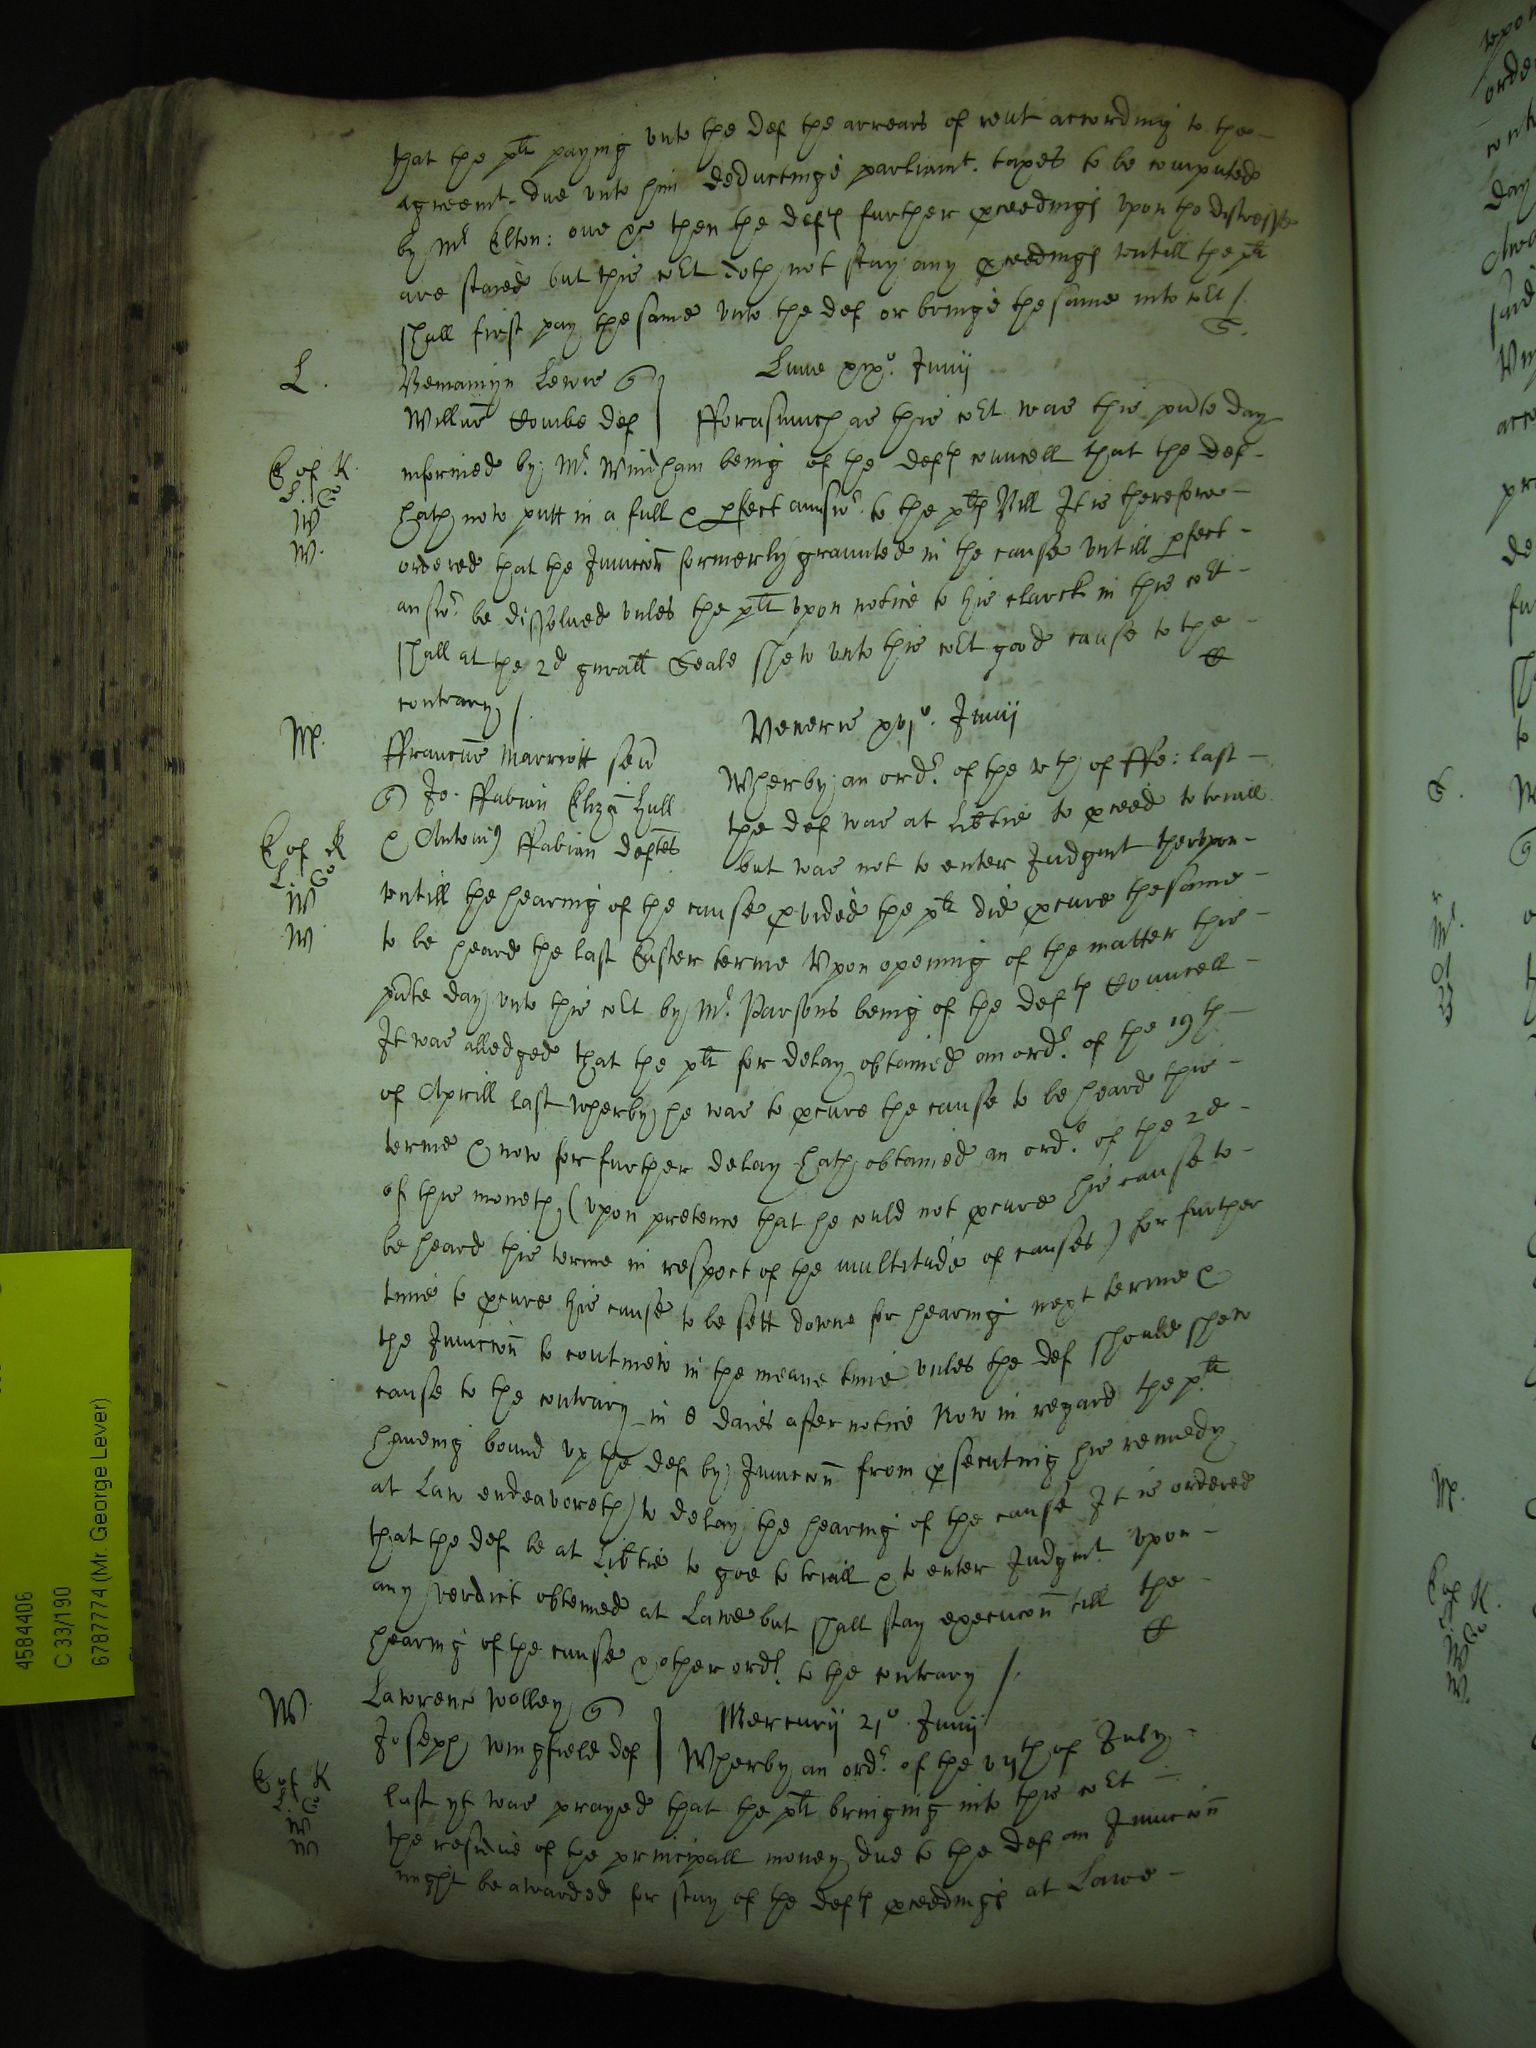 that the plt paying vnto the def the arrears of rent according to the
agreemt. due vnto him deductinge parliamt. taxes to be computed
by Mr Elton: one &c then the defts further pceedings vpon the distresse
are staied but this cort doth not stay any pceedings vntill the plt
shall first pay the same vnto the def or bringe the same into cort /.
S.
L.
Beniamyn Lewis q
Lune xix o. Junij
Willm Combe def
fforasmuch as this cort was this pnte day
E of K.
L. Co
W
W.
informed by Mr. Windham being of the defts councell that the def
hath now putt in a full & pfect answr. to the plts Bill It is therefore
ordered that the Iniuccon formerly graunted in the cause vntill pfect
answr. be dissolued vnles the plt vpon notice to his clarck in this cort
shall at the 2d gnrall Seale shew vnto this cort good cause to the
contrary /.
M.
Veneris xvj o. Junij
ffrancus Marriott sen
Wherby an ordr. of the vth of ffe: last
q Jo. ffabian Elizn Hull
the def was at libtie to pceed to triall
& Antoni9 ffabian deftes
but was not to enter Judgmt therevpon
E of K
L. Co
W
W
vntill the hearing of the cause pvided the plt did pcure the same
to be heard the last Easter terme Vpon opening of the matter this
pnte day vnto this cort by Mr. Parsons being of the defts Councell
It was alledged that the plt for delay obtained an ordr. of the 19th
of Aprill last wherby he was to pcure the cause to be heard this
terme & now for further delay hath obtained an ordr. of the 2d
of this moneth (vpon pretence that he could not pcure his cause to
be heard this terme in respect of the multitude of causes) for further
time to pcure his cause to be sett downe for hearing next terme &
the Iniuccon to continew in the meane time vnles the def should shew
cause to the contrary in 8 daies after notice Now in regard the plt
haueing bound vp the def by Iniuccon from psecuting his remedy
at Law endeavoreth to delay the hearing of the cause It is ordered
that the def be at libtie to goe to triall & to enter Judgmt. vpon
any verdict obteined at Lawe but shall stay execucon till the
hearing of the cause & other ordr. to the contrary /.
W.
Lawrenc Wolley q
Mercurij 21 o. Junij
Joseph Wingfield def
Wherby an ordr. of the vijth of July
E of K
L. Co
W
W
last yt was prayed that the plt bringing into this cort
the residue of the principall money due to the def an Iniuccon
might be awarded for stay of the defts pceedings at Lawe
4584406
C 33/190
6787774 (Mr. George Lever)